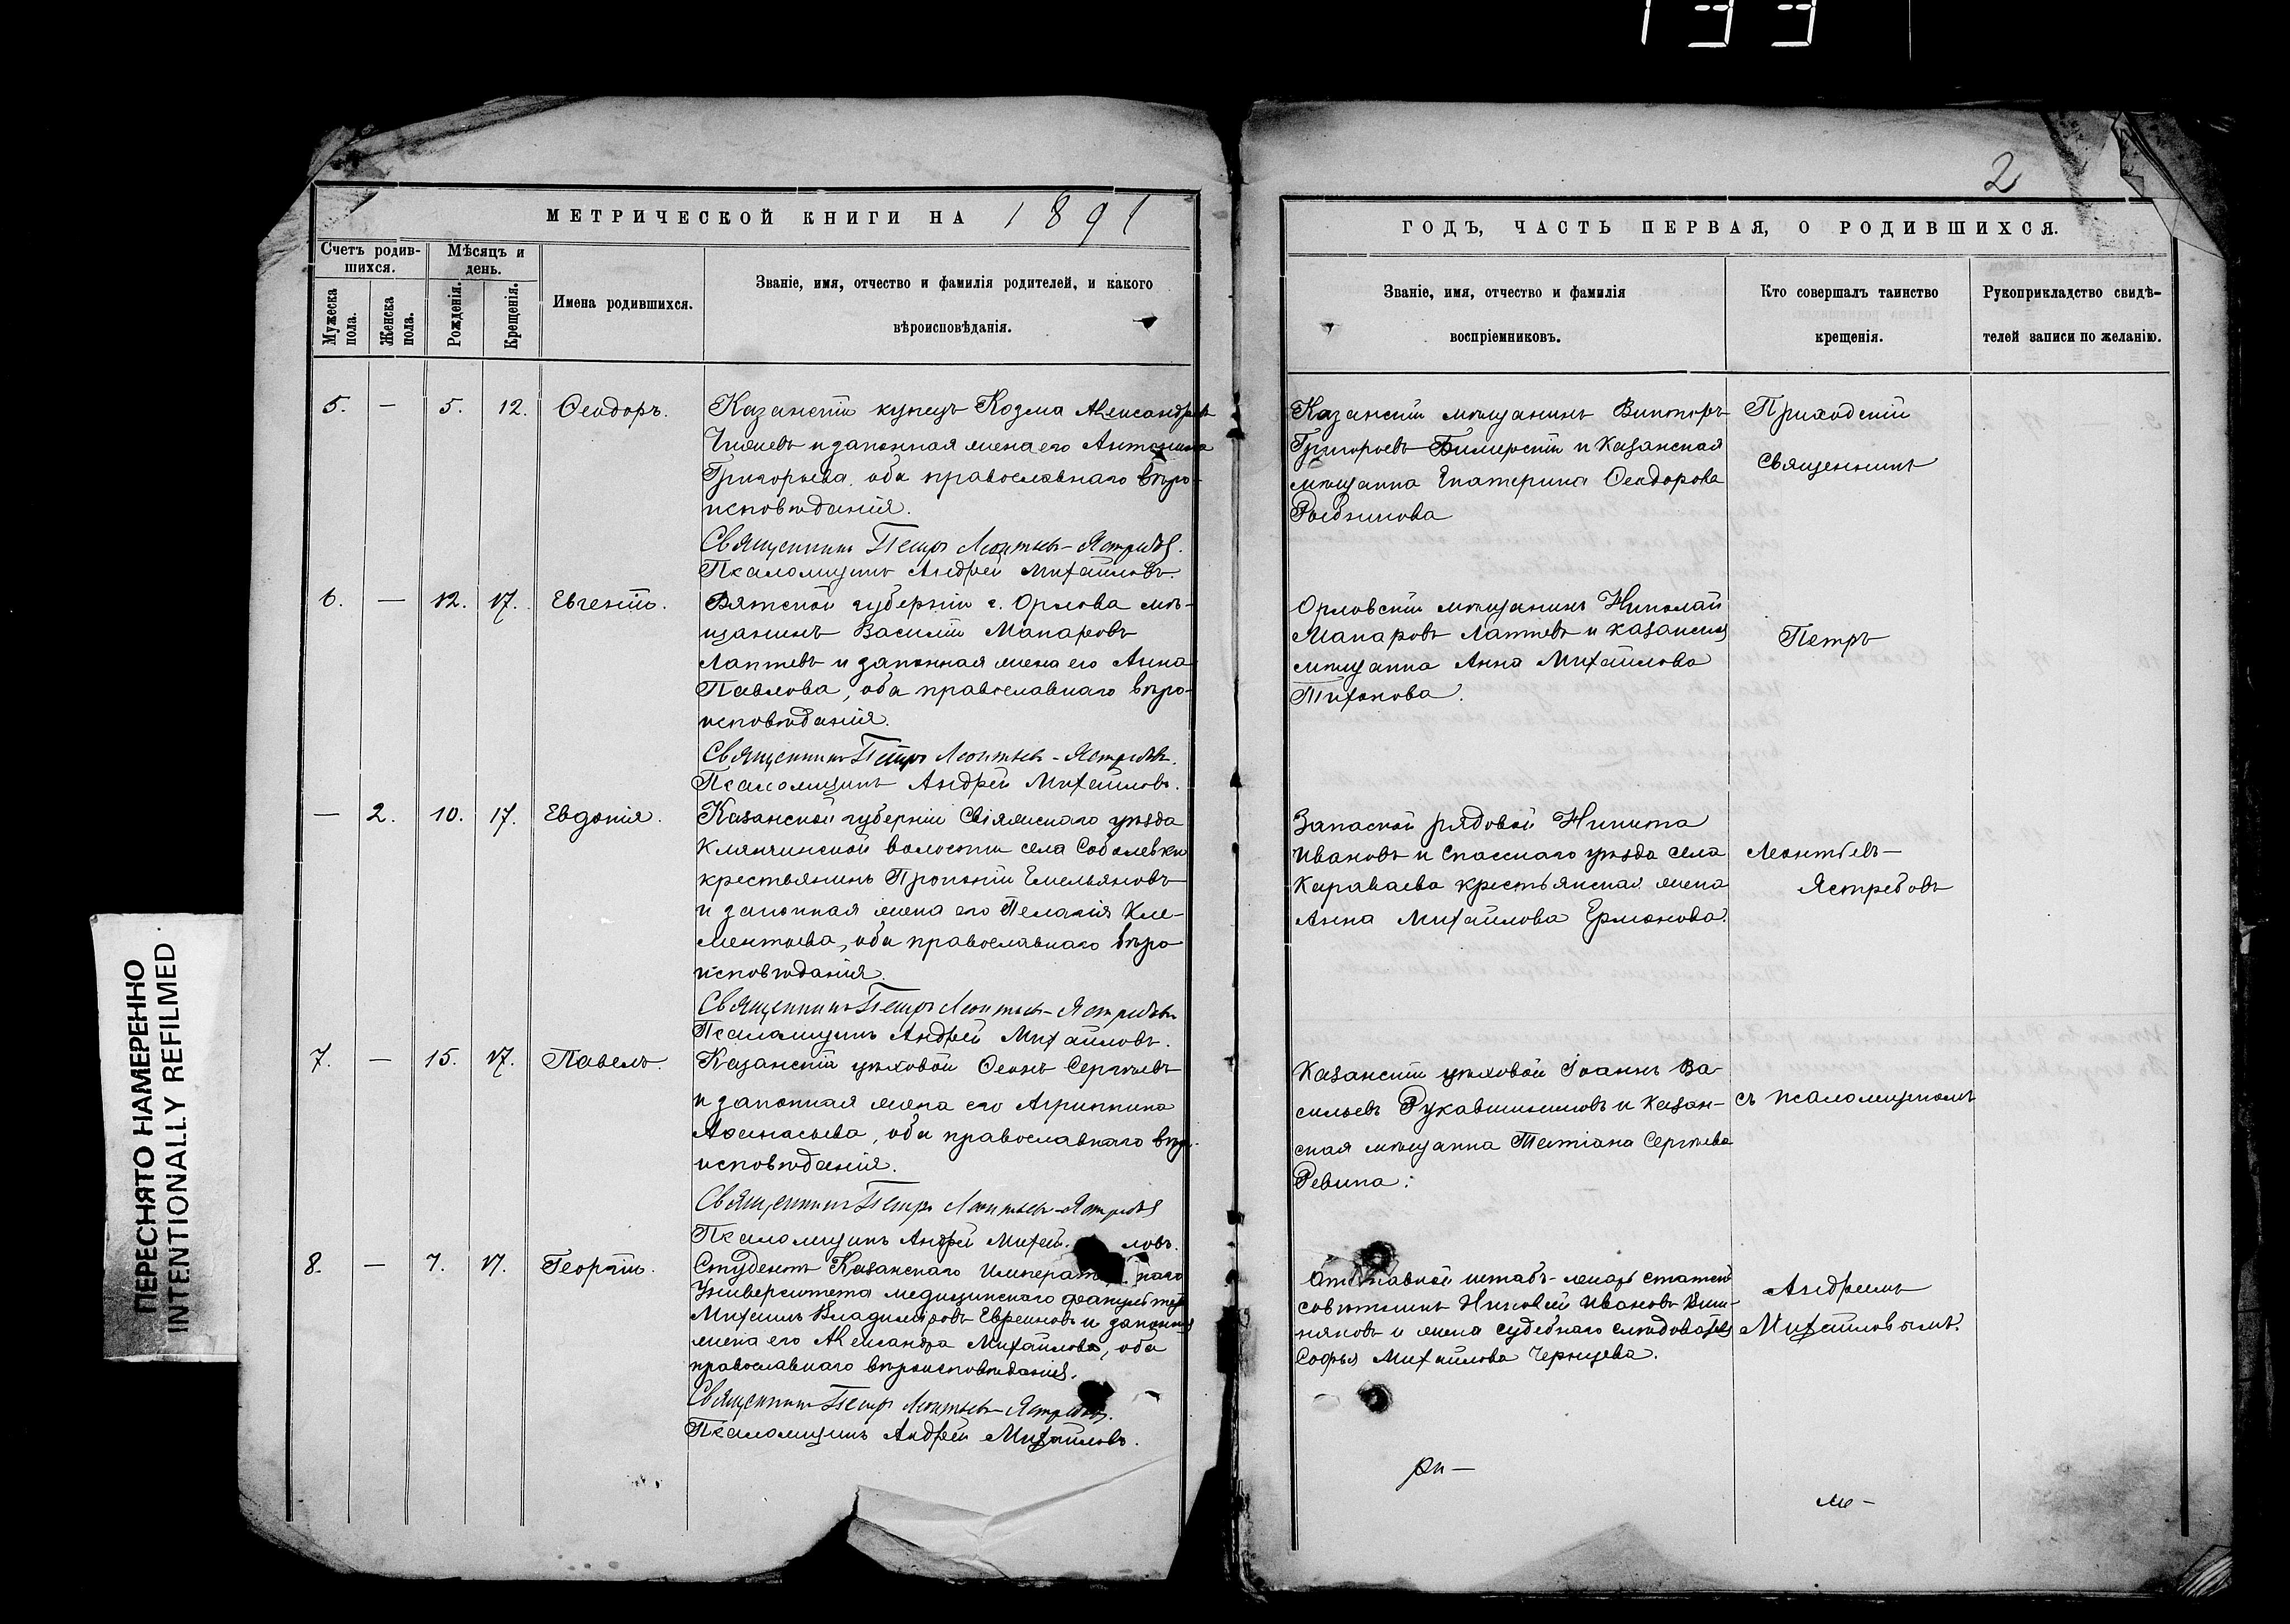 133
2
МЕТРИЧЕСКОЙ КНИГИ НА 1891
Счетъ родив-
шихся.
Мѣсяцъ и
день.
Мужеска
пола.
Женска
пола.
Рожденія.
Крещенія.
Имена родившихся.
Званіе, имя, отчество и фамилія родителей, и какого
вѣроисповѣданія.
5. — 5. 12. Ѳеодоръ.
Казанскій купецъ Козма Александровъ
и законная жена его Антонина
Григорьева, оба православнаго вѣро-
исповѣданія.
Священникъ Петръ Леонтьевъ-Ястребовъ.
Псаломщикъ Андрей Михайловъ.
6. — 12. 17. Евгеній.
Вятской губерніи г. Орлова мѣ-
щанинъ Василій Макаровъ
Лаптевъ и законная жена его Анна
Павлова, оба православнаго вѣро-
исповѣданія.
Священникъ Петръ Леонтьевъ-Ястребовъ.
Псаломщикъ Андрей Михайловъ.
— 2. 10. 17. Евдокія.
Казанской губерніи Свіяжскаго уѣзда
Клянчинской волости села Соболевки
крестьянинъ Прокопій Емельяновъ
и законная жена его Пелагія Кле-
ментьева, оба православнаго вѣро-
исповѣданія.
Священникъ Петръ Леонтьевъ-Ястребовъ
Псаломщикъ Андрей Михайловъ.
7. — 15. 17. Павелъ.
Казанскій цѣховой Сергѣевъ
и законная жена его Агриппина
Аѳанасьева, оба православнаго вѣро-
исповѣданія.
Священникъ Петръ Леонтьевъ-Ястребовъ
Псаломщикъ Андрей Михайловъ.
8. — 7. 17. Георгій.
Студентъ Казанскаго Императорскаго
Университета медицинскаго факультета
Михаилъ Владиміровъ Евреиновъ и законная
жена его Александра Михайлова, оба
православнаго вѣроисповѣданія.
Священникъ Петръ Леонтьевъ-Ястребовъ.
Псаломщикъ Андрей Михайловъ.
ГОДЪ, ЧАСТЬ ПЕРВАЯ, О РОДИВШИХСЯ.
Званіе, имя, отчество и фамилія
воспріемниковъ.
Кто совершалъ таинство
крещенія.
Рукоприкладство свидѣ-
телей записи по желанію.
Казанскій мѣщанинъ Викторъ
Григорьевъ Бимерскій и Казанская
мѣщанка Екатерина Ѳеодорова
Рыбникова
Орловскій мѣщанинъ Николай
Макаровъ Лаптевъ и казанская
мѣщанка Анна Михайлова
Тихонова.
Запасной рядовой Никита
Ивановъ и Спасскаго уѣзда села
Караваева крестьянская жена
Анна Михайлова Ермакова.
Казанскій цѣховой Іоаннъ Ва-
сильевъ Рукавишниковъ и Казан-
ская мѣщанка Татіана Сергѣева
Ревина.
Отставной штабъ-лекарь статскій
совѣтникъ Николай Ивановъ
и жена судебнаго слѣдователя
Софья Михайлова Чернцева.
Приходскій
Священникъ
Петръ
Леонтьевъ-
Ястребовъ
съ псаломщикомъ
Андреемъ
Михайловымъ.
ПЕРЕСНЯТО НАМЕРЕННО
INTENTIONALLY REFILMED